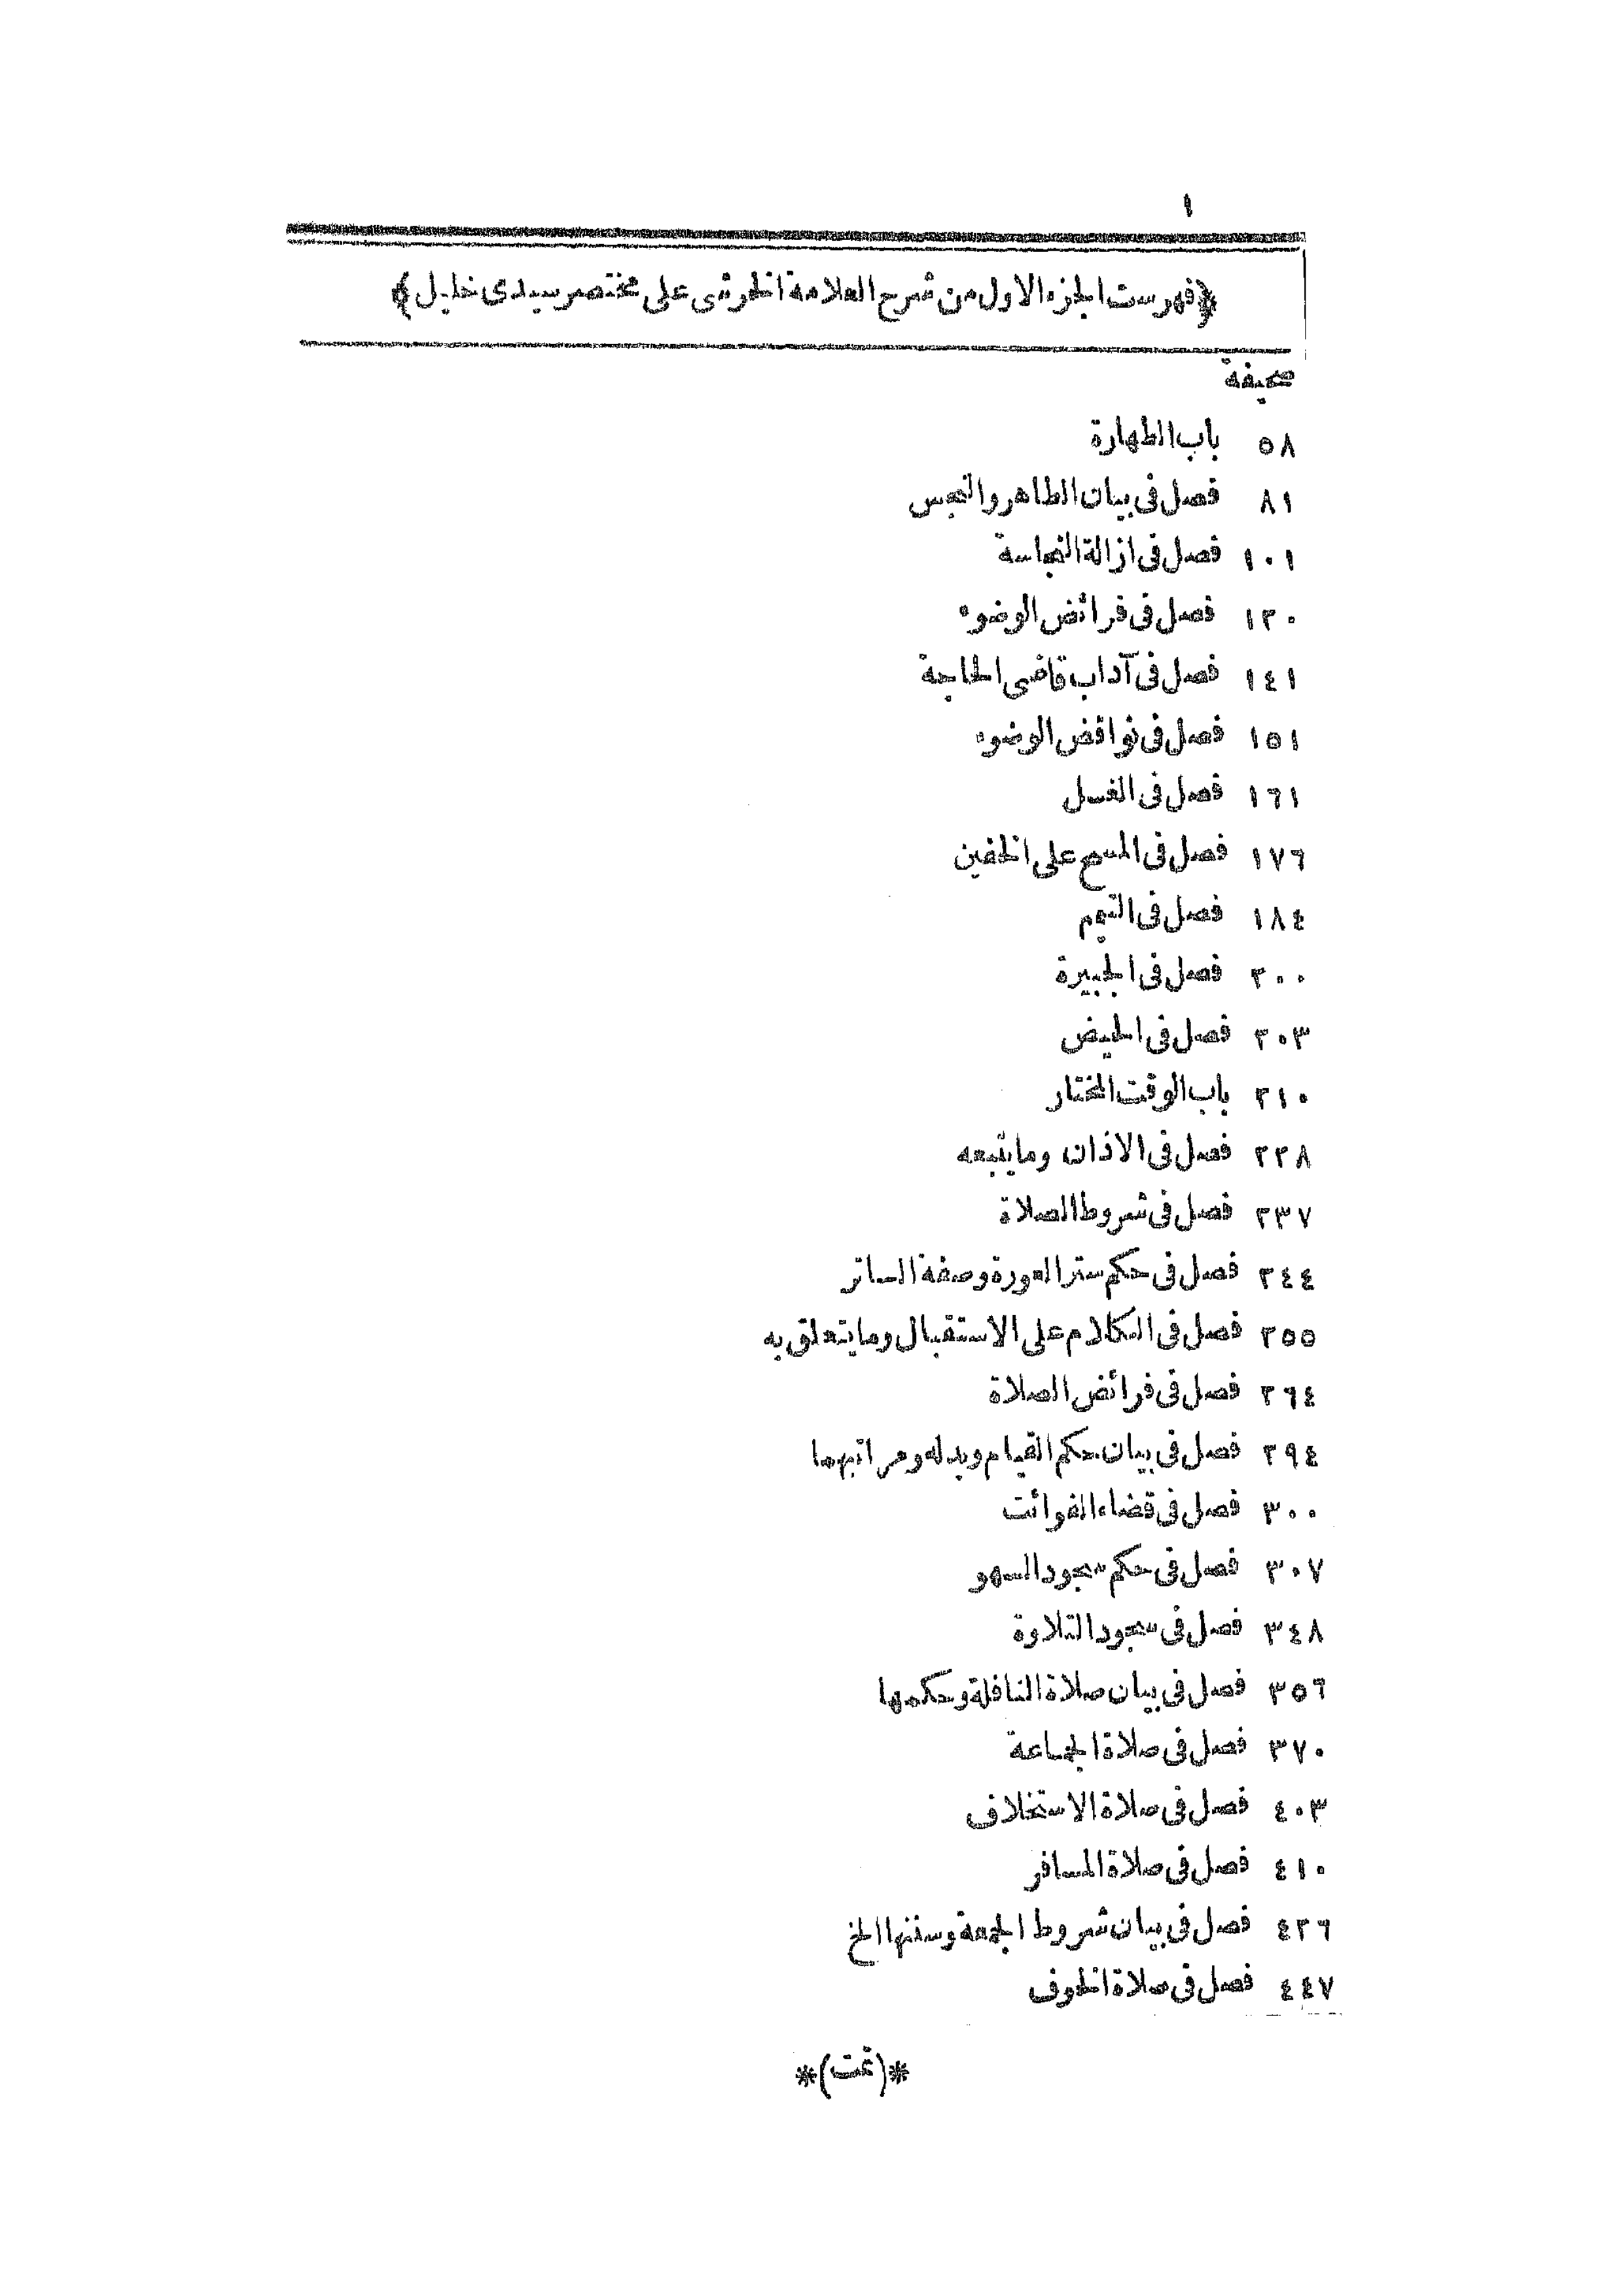 ١
﴿فهرست الجزء الاول من شرح العلامة الخرشى على مختصر سيدى خليل﴾
صحيفة
٥٨ باب الطهارة
٨١ فصل فى بيان الطاهر والنجس
١٠١ فصل فى ازالة النجاسة
١٢٠ فصل فى فرائض الوضوء
١٤١ فصل فى آداب قاضى الحاجة
١٥١ فصل فى نواقض الوضوء
١٦١ فصل فى الغسل
١٧٦ فصل فى المسح على الخفين
١٨٤ فصل فى التيمم
٢٠٠ فصل فى الجبيرة
٢٠٣ فصل فى الحيض
٢١٠ باب الوقت المختار
٢٢٨ فصل فى الاذان وما يتبعه
٢٣٧ فصل فى شروط الصلاة
٢٤٤ فصل فى حكم ستر العورة وصفة الساتر
٢٥٥ فصل فى الكلام على الاستقبال وما يتعلق به
٢٦٤ فصل فى فرائض الصلاة
٢٩٤ فصل فى بيان حكم القيام وبدله ومراتبهما
٣٠٠ فصل فى قضاء الفوائت
٣٠٧ فصل فى حكم سجود السهو
٣٤٨ فصل فى سجود التلاوة
٣٥٦ فصل فى بيان صلاة النافلة وحكمها
٣٧٠ فصل فى صلاة الجماعة
٤٠٣ فصل فى صلاة الاستخلاف
٤١٠ فصل فى صلاة المسافر
٤٢٦ فصل فى بيان شروط الجمعة وسننها الخ
٤٤٧ فصل فى صلاة الخوف
*(تمت)*